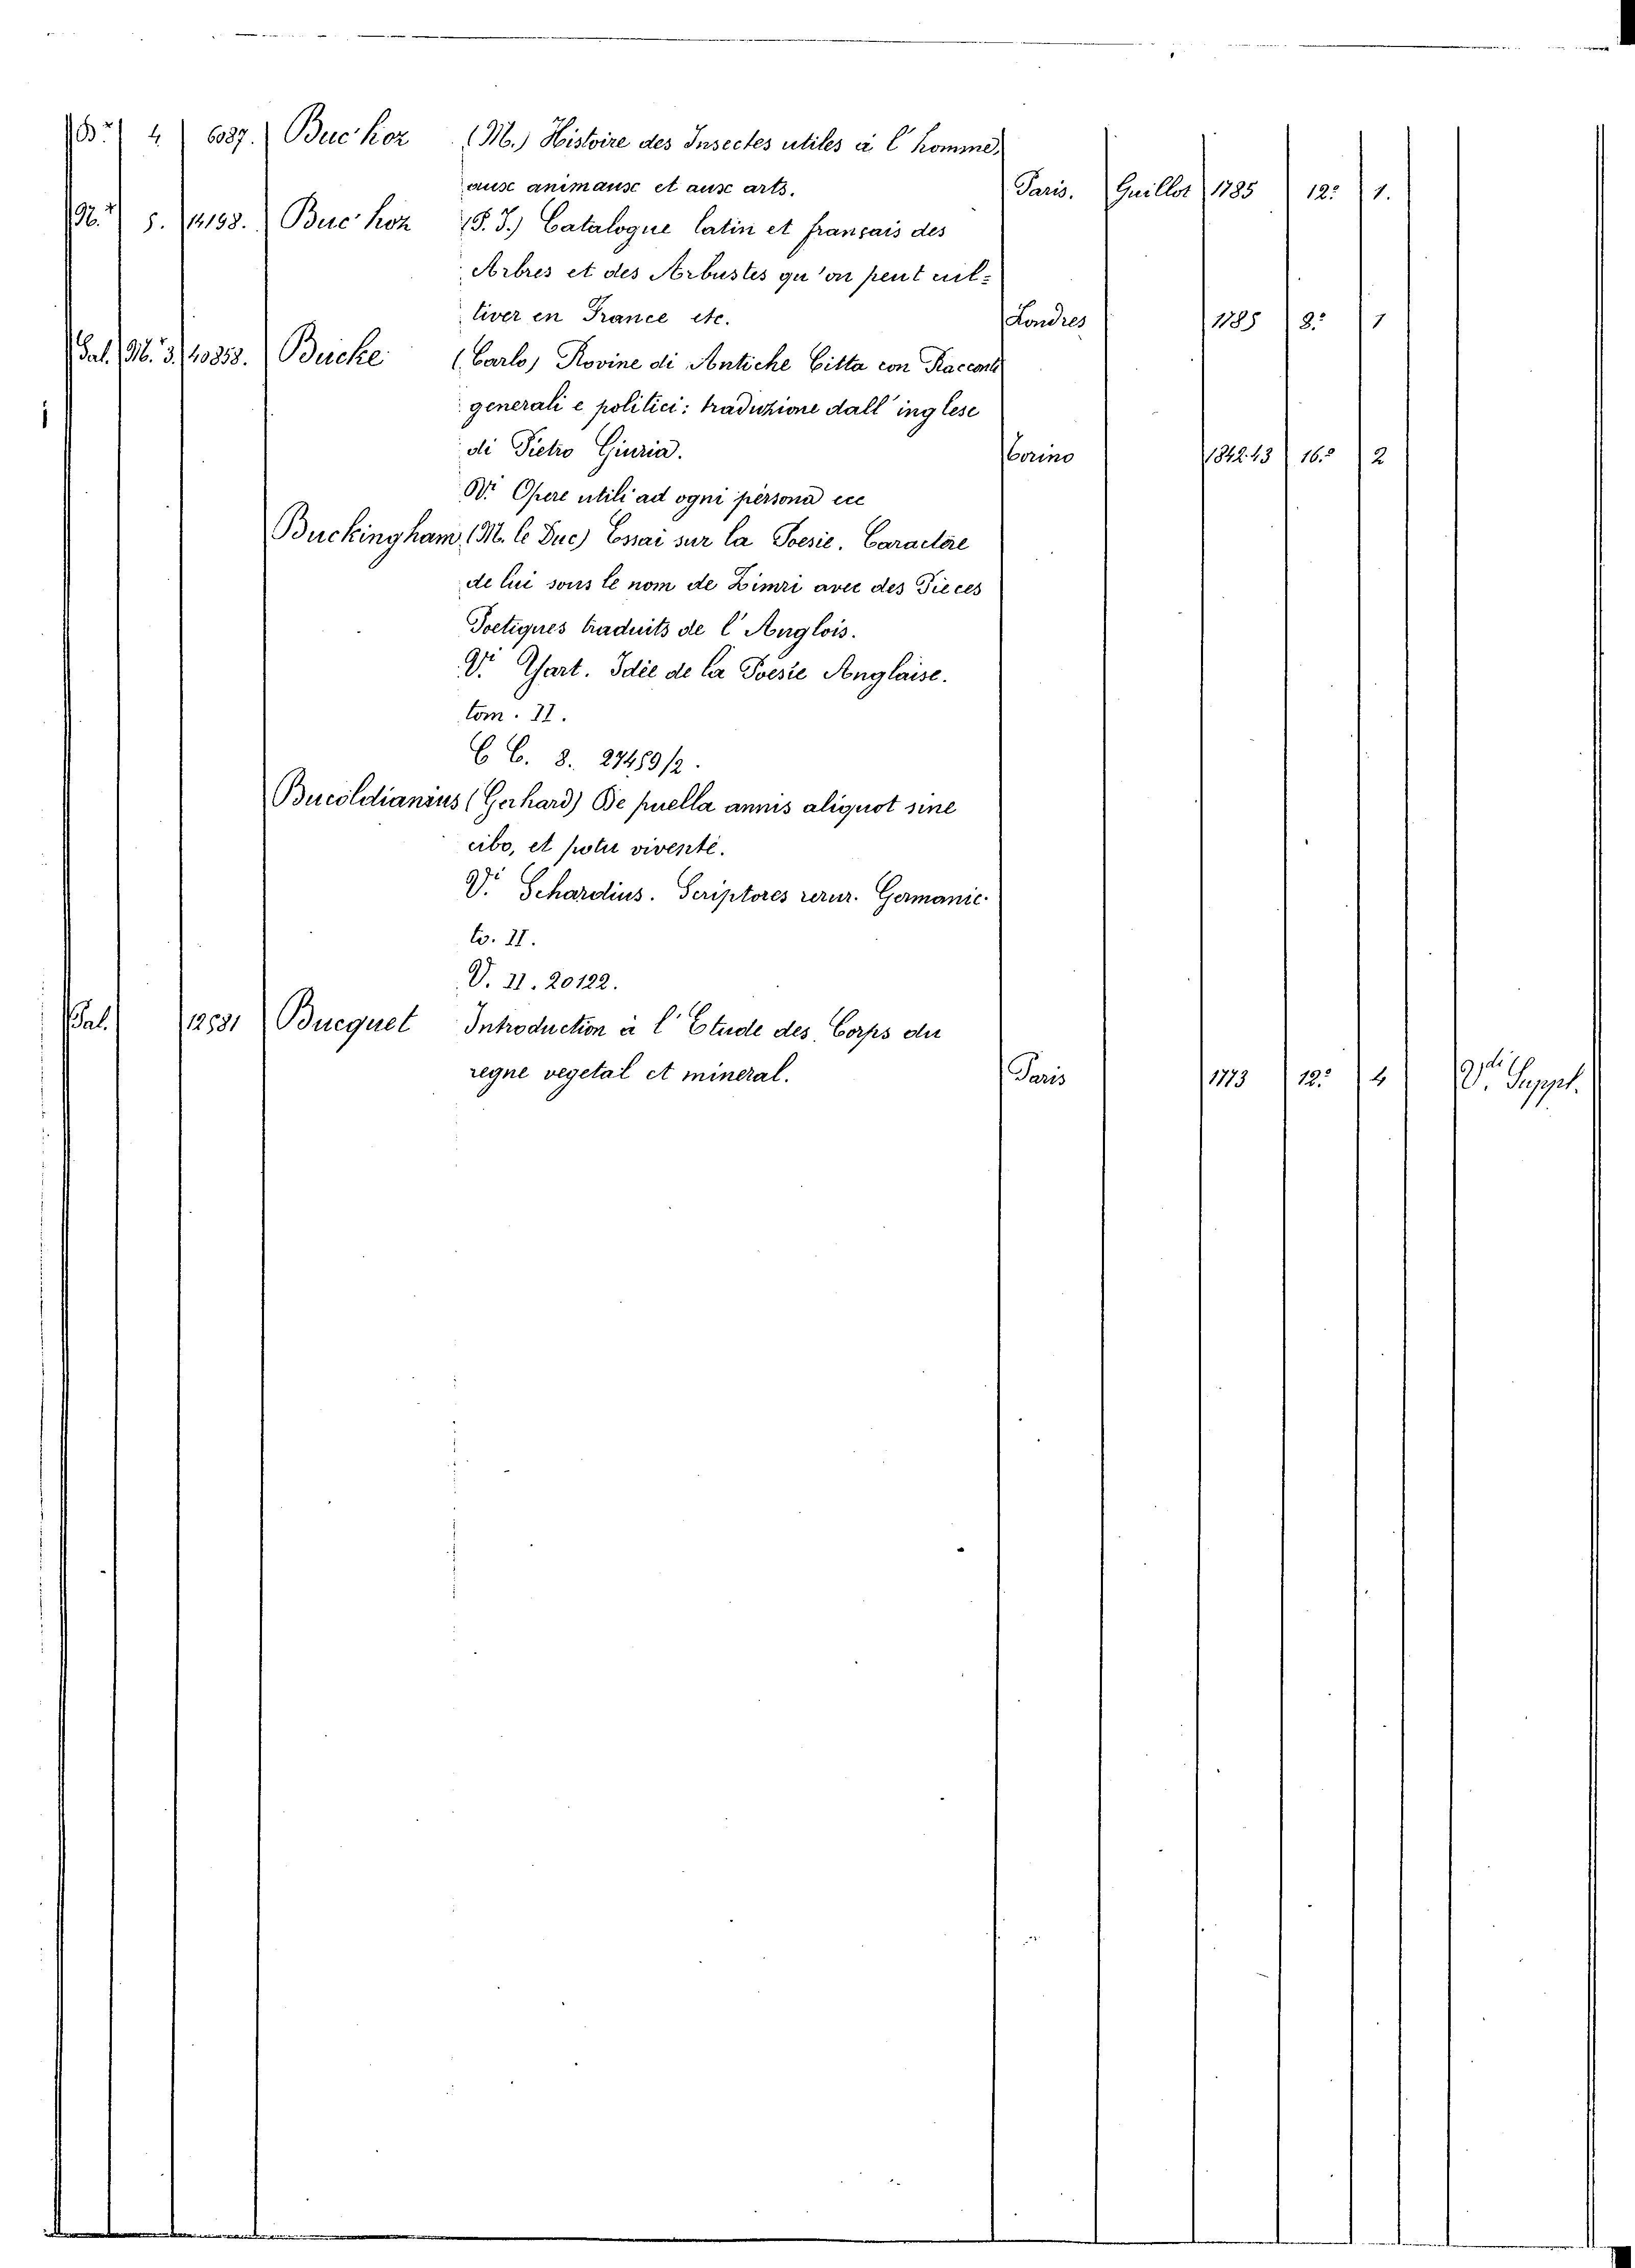 B.r 4 6087. Buc'hoz (M.) Histoire des Insectes utiles à l'homme,
aux animaux et aux arts. Paris. Guillot 1785 12.° 1.
N.r 5. 14198. Buc'hoz (P. J.) Catalogue latin et français des
Arbres et des Arbustes qu'on peut cul-
tiver en France etc. Londres 1785 8.° 1
Pal. M. 3. 40858. Bucke (Carlo) Rovine di Antiche Citta con Racconti
generali e politici: traduzione dall'inglese
di Pietro Giuria. Torino 1842.43 16.° 2
V.i Opere utili ad ogni persona ecc
Buckingham (M. le Duc) Essai sur la Poesie. Caractére
de lui sous le nom de Zimri avec des Pieces
Poetiques traduits de l'Anglois.
V.i Yart. Idée de la Poesie Anglaise.
tom. II.
C C. 8. 27459/2.
Bucoldianius (Gerhard) De puella annis aliquot sine
cibo, et potu vivente.
V.i Schardius. Scriptores rerur. Germanic.
to. II.
V. II. 20122.
Pal. 12581 Bucquet Introduction à l'Etude des Corps du
regne vegetal et mineral. Paris 1773 12.° 4 V.di Suppl.